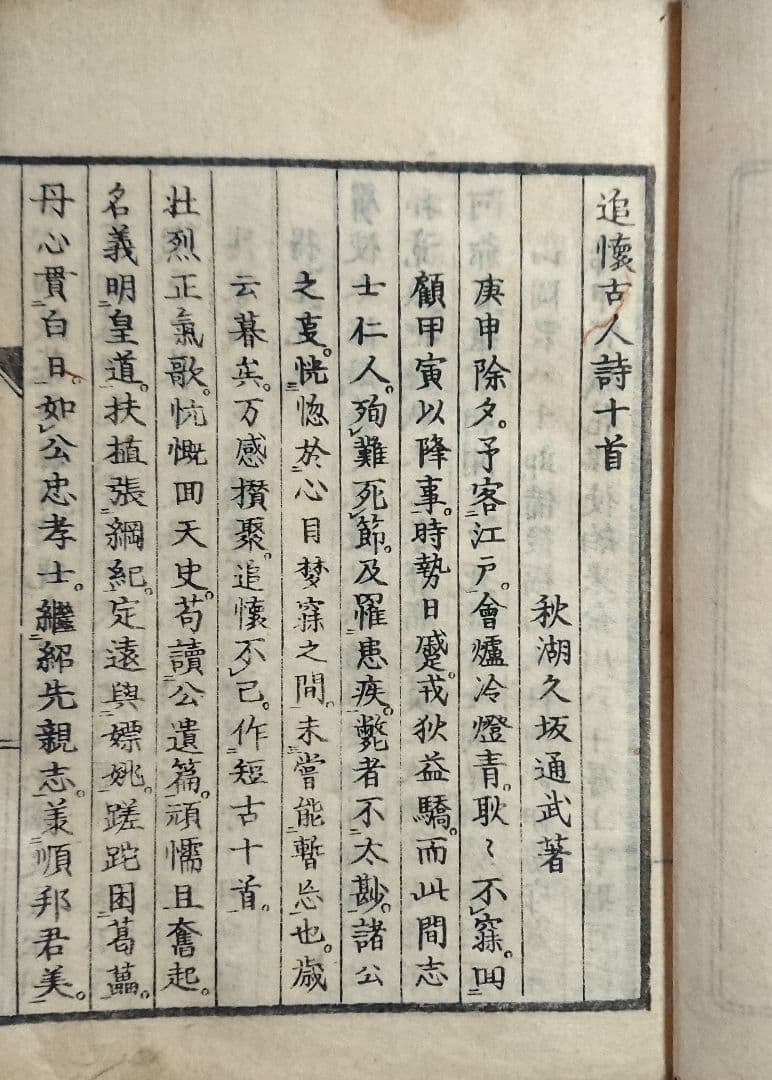 追懷古人詩十首
秋湖久坂通武著
庚申除夕。予客江戸。會爐冷燈青。耿〻不寐。回
顧甲寅以降事。時勢日蹙。戎狄益驕。而此間志
士仁人。殉難死節。及罹患疾。斃者不太尠。諸公
之㕝。恍惚於心目梦寐之間。未嘗能暫忘也。歳
云暮矣。万感攅聚。追懷不已。作短古十首。
壯烈正氣歌。忼慨回天史。苟讀公遺篇。頑懦且奮起。
名義明皇道。扶植張綱紀。定遠與嫖姚。蹉跎困葛藟。
丹心貫白日。如公忠孝士。繼紹先親志。羕順邦君美。